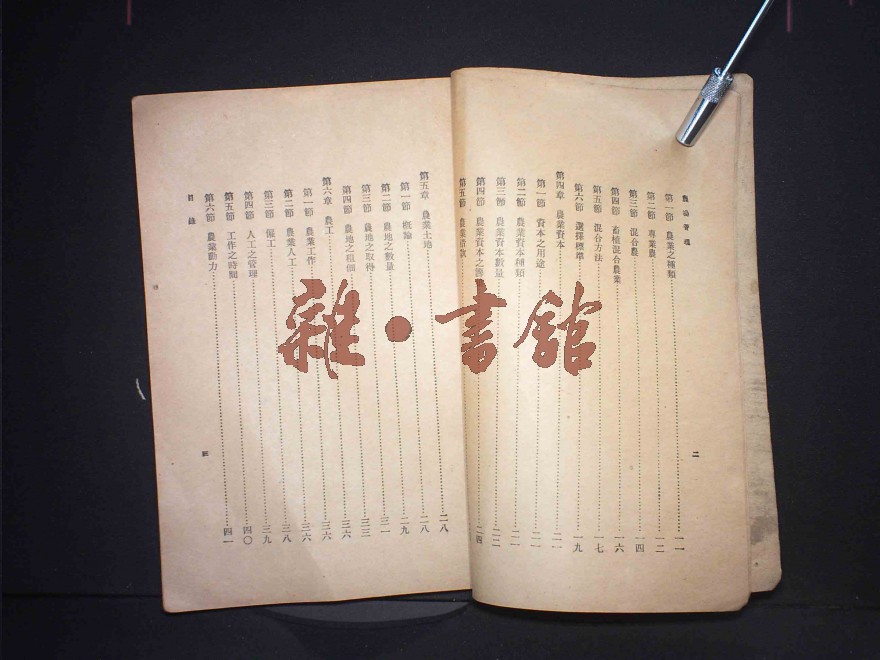 農場管理
二
第一節 農業之種類 一一
第二節 專業農 一二
第三節 混合農 一四
第四節 畜植混合農業 一六
第五節 混合方法 一七
第六節 選擇標準 一九
第四章 農業資本 二一
第一節 資本之用途 二一
第二節 農業資本種類 二一
第三節 農業資本數量 二二
第四節 農業資本之 二四
第五節 農業借款
第五章 農業土地 二八
第一節 概論 二九
第二節 農地之數量 三一
第三節 農地之取得 三三
第四節 農地之租佃 三六
第六章 農工 三六
第一節 農業工作 三六
第二節 農業人工 三八
第三節 僱工 三九
第四節 人工之管理 四〇
第五節 工作之時間 四一
第六節 農業動力
目錄
三
雜·書館